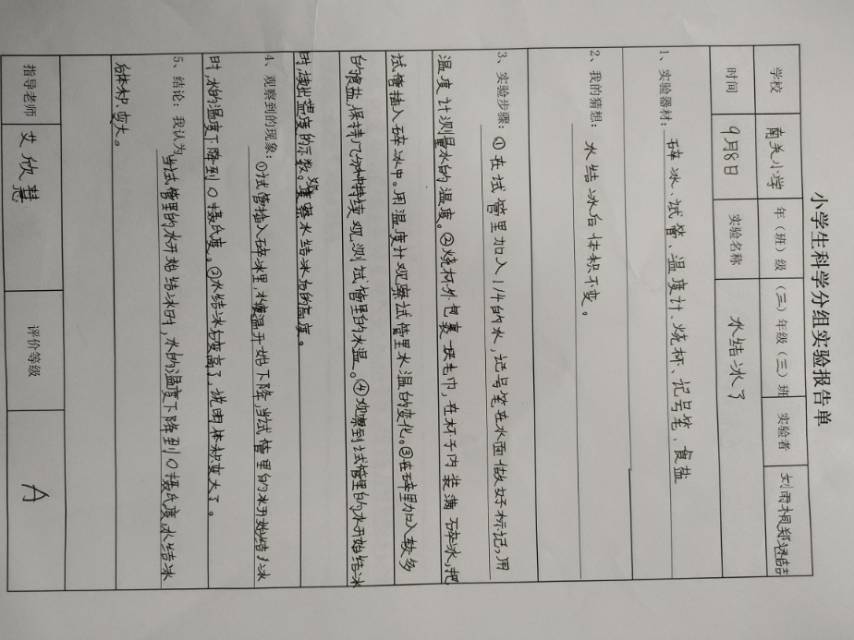 小学生科学分组实验报告单
学校 南关小学 年（班）级 （三）年级（三）班 实验者 刘雨桐郑
时间 9月8日 实验名称 水结冰了
1、实验器材： 碎冰、试管、温度计、烧杯、记号笔、食盐
2、我的猜想： 水结冰后体积不变。
3、实验步骤：①在试管里加入1/4的水，记号笔在水面做好标记，用
温度计测量水的温度。②烧杯外包裹一块毛巾，在杯子内装满碎冰，把
试管插入碎冰中。用温度计观察试管里水温的变化。③在碎里加入较多
的食盐，保持几分钟持续观测试管里的水温。④观察到试管里的水开始结冰
时读出温度的示数。观察水结冰后的高度。
4、观察到的现象：①试管插入碎冰里，水温开始下降，当试管里的水开始结冰
时，水的温度下降到0摄氏度。②水结冰后变高了，说明体积变大了。
5、结论：我认为 当试管里的水开始结冰时，水的温度下降到0摄氏度，水结冰
后体积变大。
指导老师 艾欣慧 评价等级 A